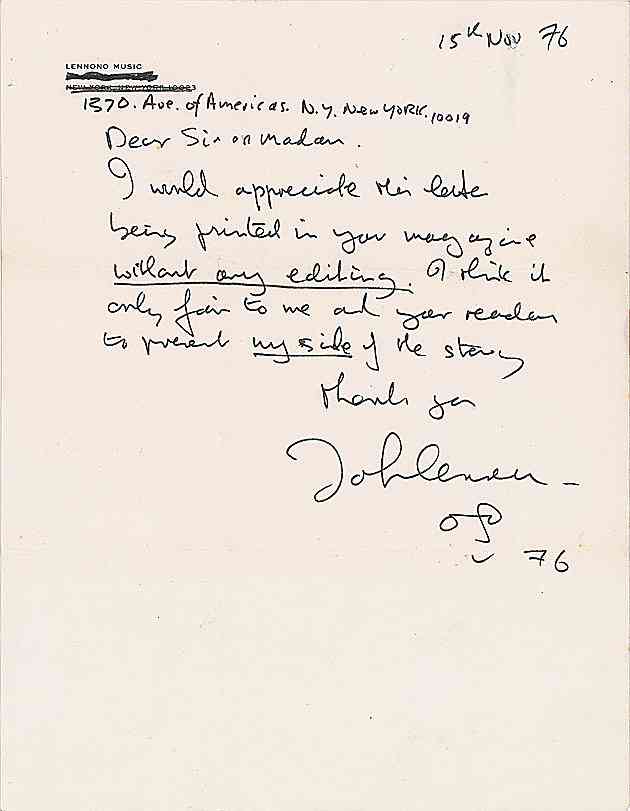 15th Nov 76
LENNONO MUSIC
NEW YORK, NEW YORK 10023
1370. Ave. of Americas. N.Y. New YORK. 10019
Dear Sir or Madam.
I would appreciate this letter
being printed in your magazine
without any editing. I think it
only fair to me and your readers
to present my side of the story
thank you
John Lennon
76